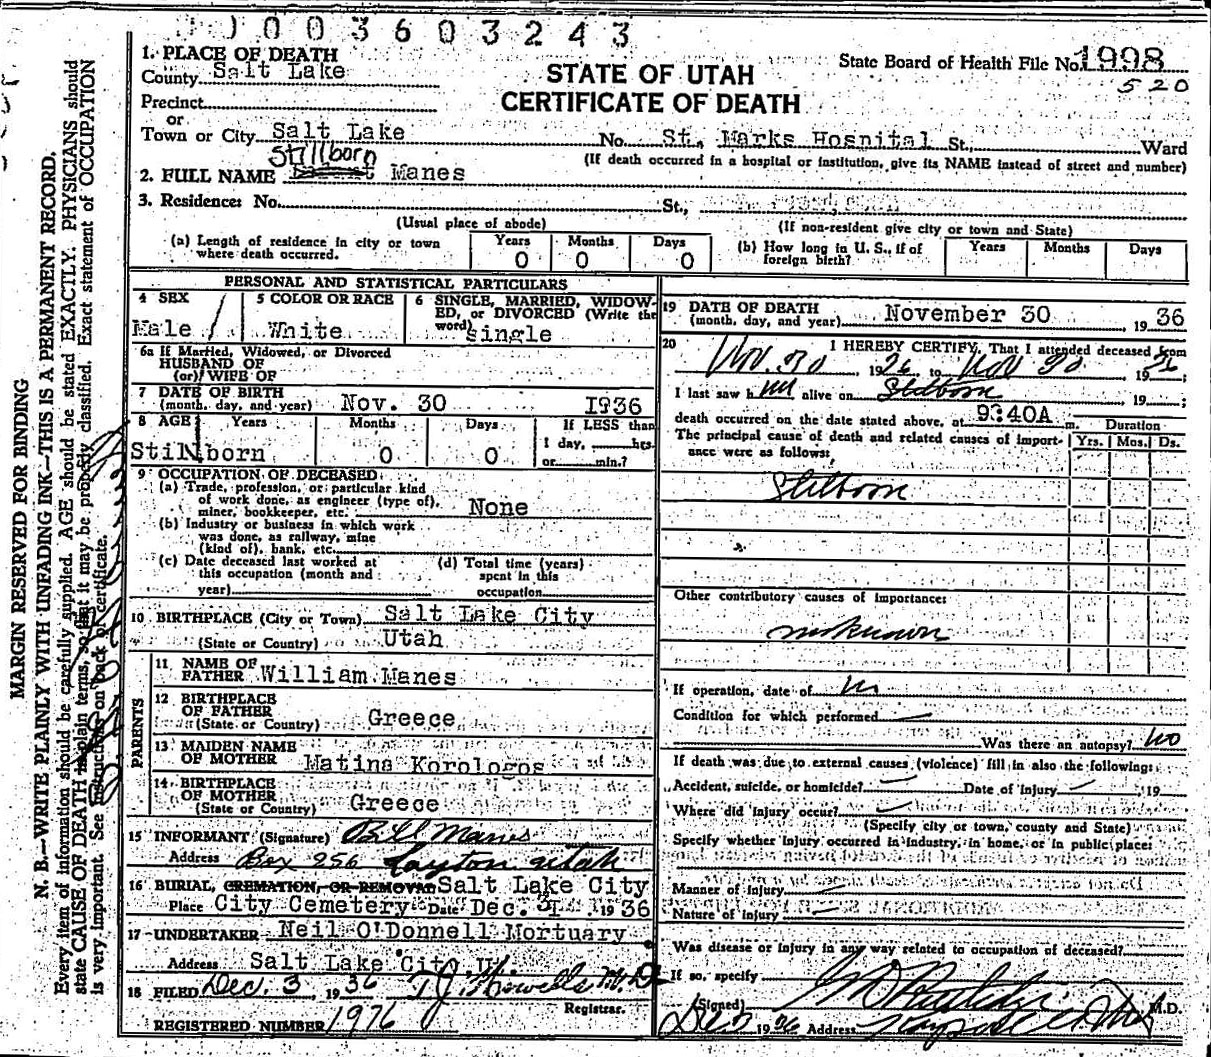 003603243
1. PLACE OF DEATH
County Salt Lake
STATE OF UTAH
CERTIFICATE OF DEATH
State Board of Health File No. 1998
520
Precinct
or
Town or City Salt Lake No. St. Marks Hospital St., Ward
(If death occurred in a hospital or institution, give its NAME instead of street and number)
2. FULL NAME Stillborn Manes
3. Residence: No. St.,
(Usual place of abode) (If non-resident give city or town and State)
(a) Length of residence in city or town where death occurred. Years 0 Months 0 Days 0
(b) How long in U. S., if of foreign birth? Years Months Days
PERSONAL AND STATISTICAL PARTICULARS
4 SEX Male
5 COLOR OR RACE White
6 SINGLE, MARRIED, WIDOWED, or DIVORCED (Write the word) single
6a If Married, Widowed, or Divorced
HUSBAND OF
(or) WIFE OF
7 DATE OF BIRTH
(month, day, and year) Nov. 30 1936
8 AGE Years Months Days If LESS than
Stillborn 0 0 1 day, hrs.
or min.?
9 OCCUPATION OF DECEASED:
(a) Trade, profession, or particular kind
of work done, as engineer (type of),
miner, bookkeeper, etc. None
(b) Industry or business in which work
was done, as railway, mine
(kind of), bank, etc.
(c) Date deceased last worked at
this occupation (month and
year)
(d) Total time (years)
spent in this
occupation
10 BIRTHPLACE (City or Town) Salt Lake City
(State or Country) Utah
PARENTS
11 NAME OF
FATHER William Manes
12 BIRTHPLACE
OF FATHER
(State or Country) Greece
13 MAIDEN NAME
OF MOTHER Matina Korologos
14 BIRTHPLACE
OF MOTHER
(State or Country) Greece
15 INFORMANT (Signature) Bill Manes
Address Box 256 Layton Utah
16 BURIAL, CREMATION, OR REMOVAL Salt Lake City
Place City Cemetery Date Dec. 1936
17 UNDERTAKER Neil O'Donnell Mortuary
Address Salt Lake City, Ut.
18 FILED Dec. 3 1936 T J Howells M.D.
Registrar.
REGISTERED NUMBER 1976
19 DATE OF DEATH
(month, day, and year) November 30 1936
20 I HEREBY CERTIFY, That I attended deceased from
Nov. 30 1936 to Nov 30 1936;
I last saw him alive on Stilborn 19 ;
death occurred on the date stated above, at 9:40A m.
The principal cause of death and related causes of importance were as follows:
Duration
Yrs. Mos. Ds.
Stilborn
Other contributory causes of importance:
unknown
If operation, date of
Condition for which performed
Was there an autopsy? No
If death was due to external causes (violence) fill in also the following:
Accident, suicide, or homicide? Date of injury 19
Where did injury occur?
(Specify city or town, county and State)
Specify whether injury occurred in industry, in home, or in public place:
Manner of injury
Nature of injury
Was disease or injury in any way related to occupation of deceased?
If so, specify
(Signed) M.D.
1936 Address
MARGIN RESERVED FOR BINDING
N. B.—WRITE PLAINLY WITH UNFADING INK—THIS IS A PERMANENT RECORD.
Every item of information should be carefully supplied. AGE should be stated EXACTLY. PHYSICIANS should
state CAUSE OF DEATH in plain terms, so that it may be properly classified. Exact statement of OCCUPATION
is very important. See instructions on back of certificate.